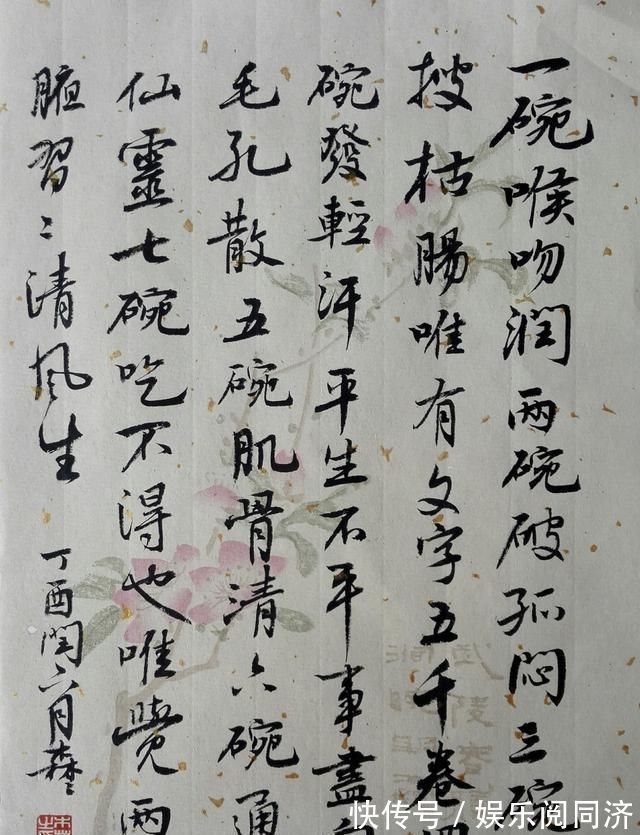 一碗喉吻潤兩碗破孤悶三碗
搜枯腸唯有文字五千卷四
碗發輕汗平生不平事盡向
毛孔散五碗肌骨清六碗通
仙靈七碗吃不得也唯覺兩
腋習〻清風生
丁酉閏六月
快传号 / 娱乐阅同济